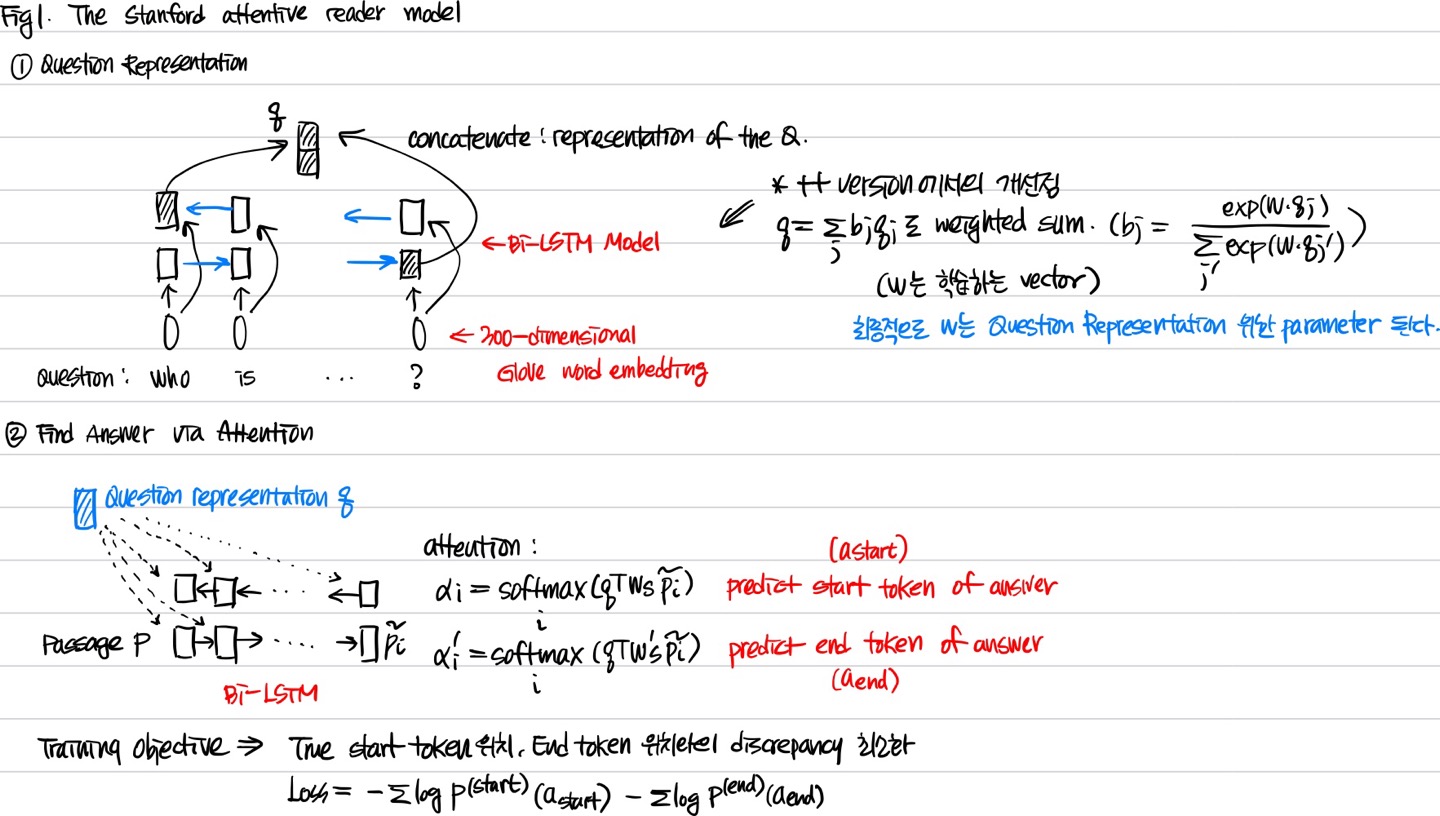 Fig1. The Stanford attentive reader model
① Question Representation
q
concatenate : representation of the Q.
* ++ version에서의 개선점
q = Σ_j b_j q_j 로 weighted sum. (b_j = exp(w·q_j) / Σ_j' exp(w·q_j'))
(w는 학습하는 vector)
최종적으로 w는 Question Representation 위한 parameter 된다.
← Bi-LSTM Model
← 300-dimensional
Glove word embedding
Question : who is ... ?
② Find Answer via Attention
Question representation q
attention :
(a_start)
α_i = softmax_i (q^T W_s p̃_i) predict start token of answer
Passage P .... p̃_i
α_i' = softmax_i (q^T W_s' p̃_i) predict end token of answer
(a_end)
Bi-LSTM
Training objective ⇒ True start token 위치, End token 위치와의 discrepancy 최소화
Loss = -Σ log P^(start) (a_start) - Σ log P^(end) (a_end)